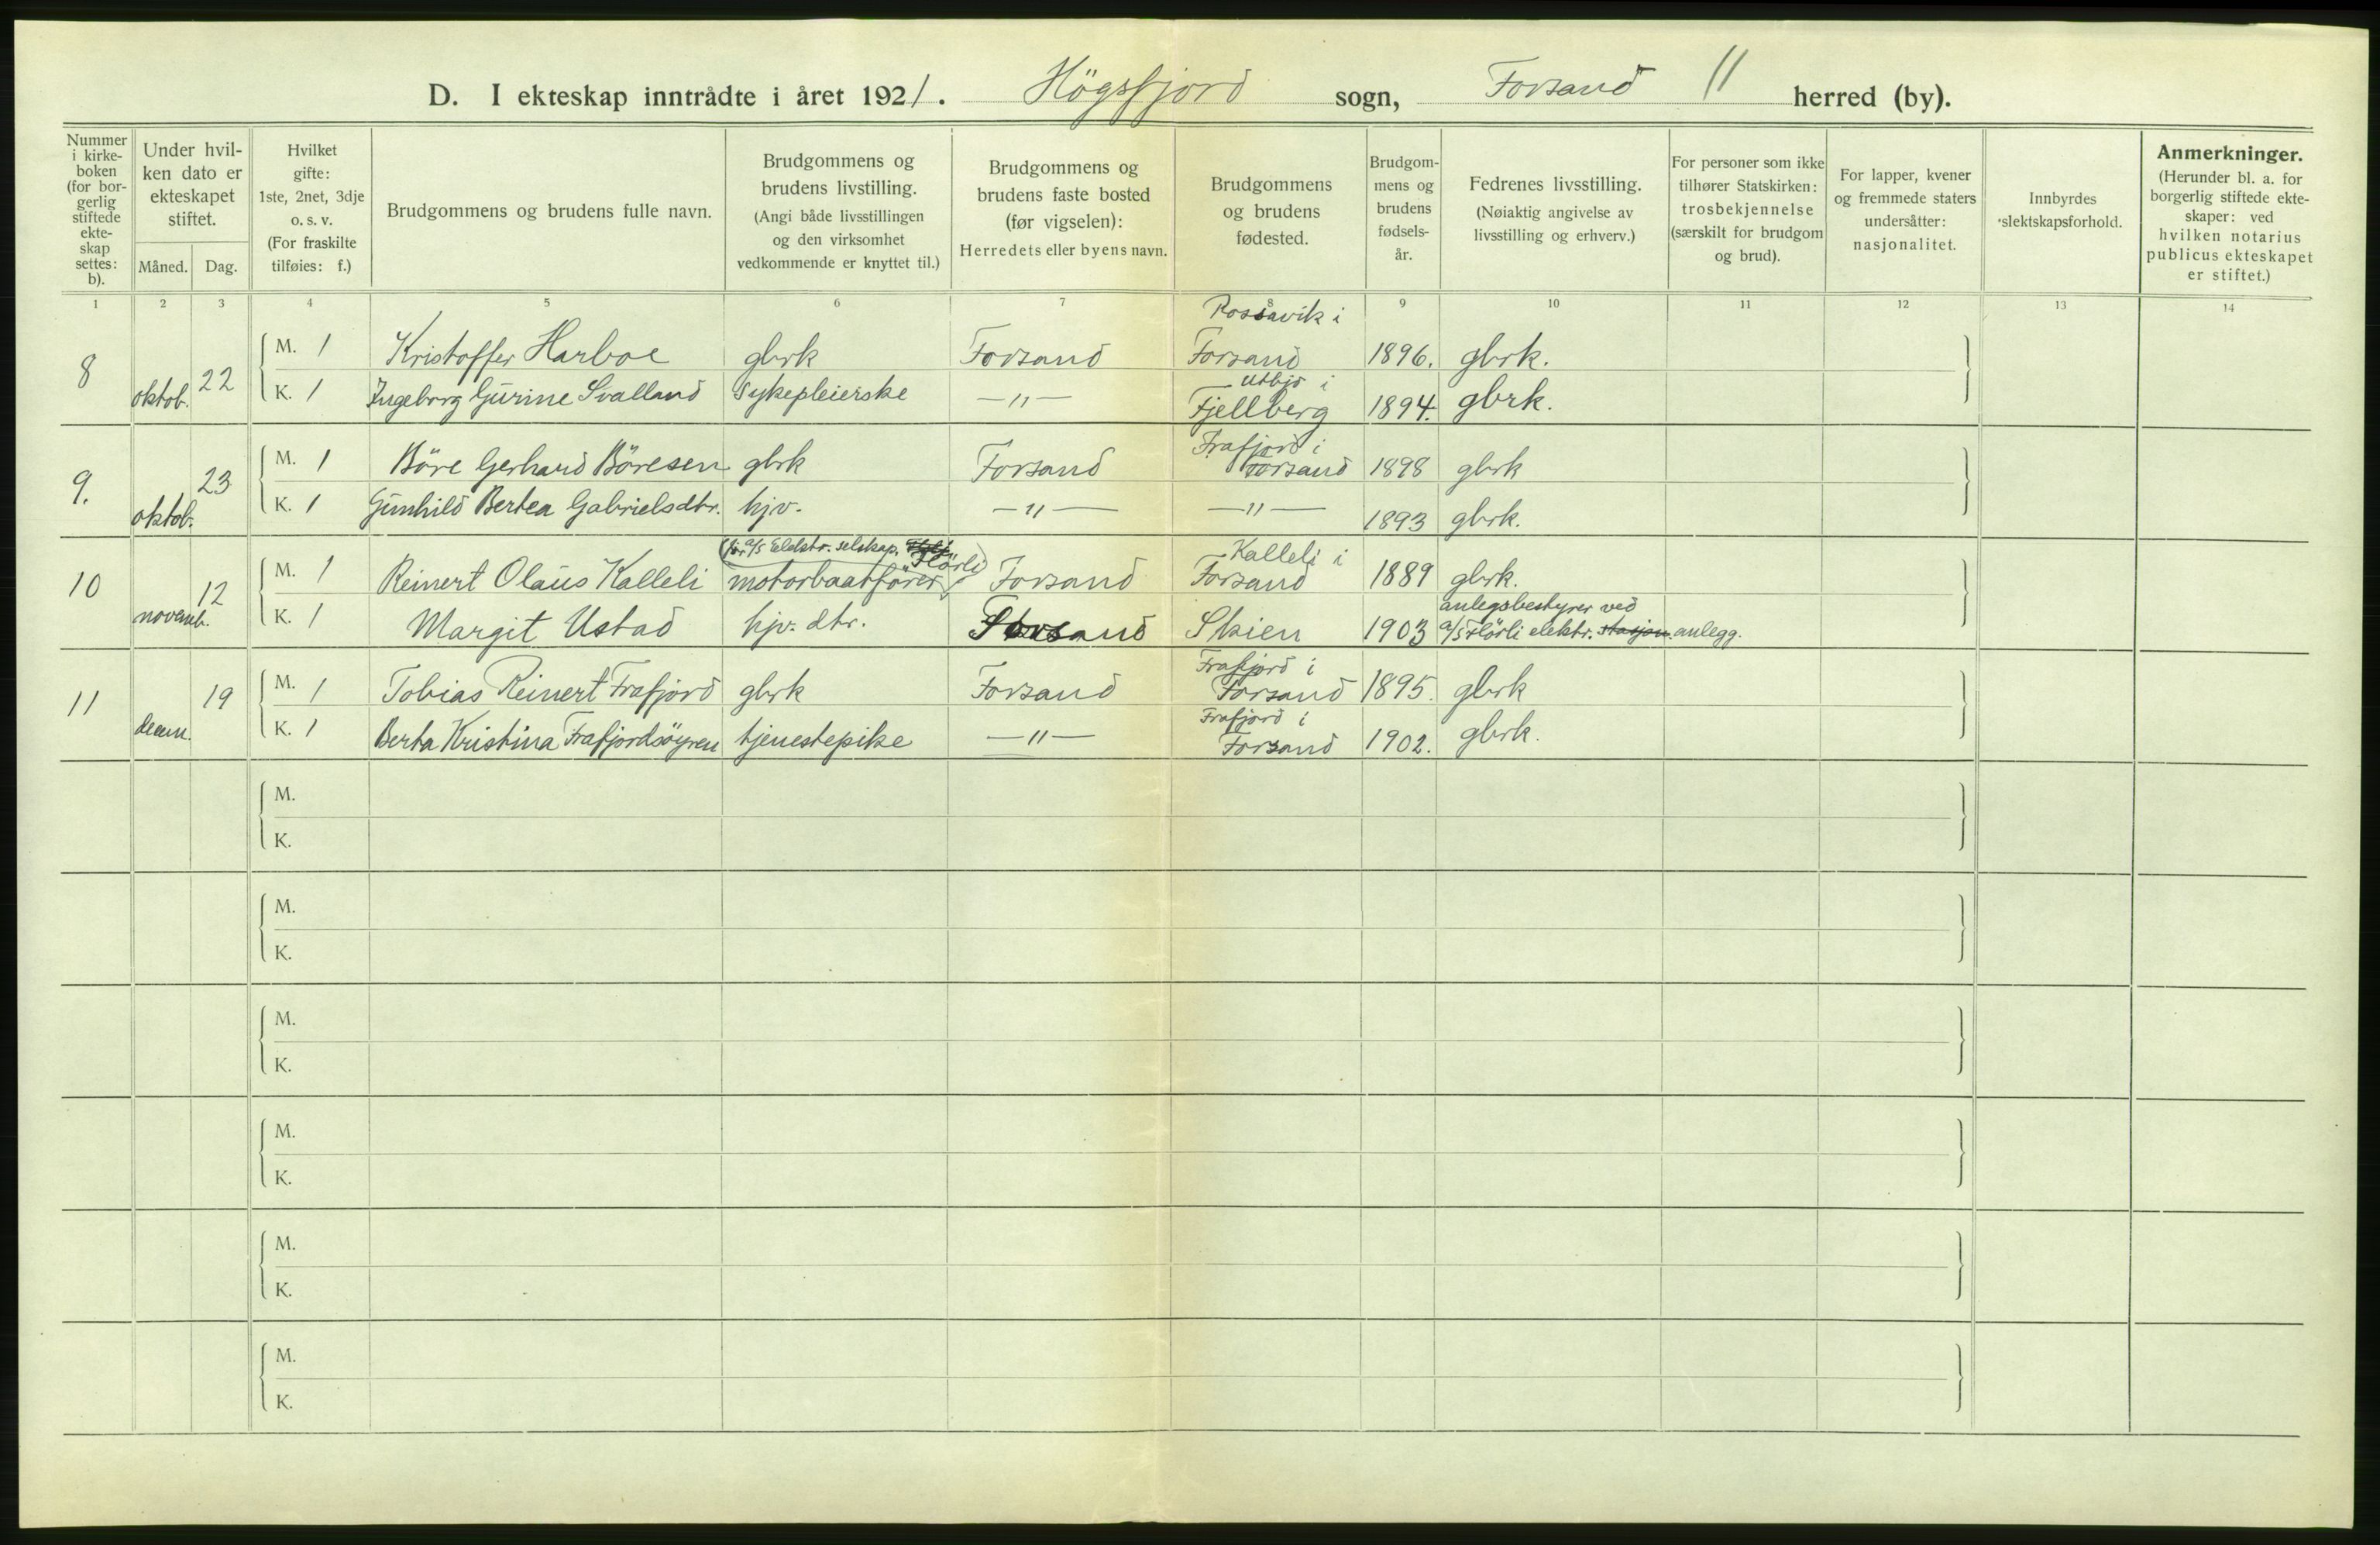 D. I ekteskap inntrådte i året 1921. Högsfjord sogn, Forsand 11 herred (by).
Nummer i kirke- boken (for bor- gerlig stiftede ekte- skap settes: b).
Under hvil- ken dato er ekteskapet stiftet.
Måned. Dag.
Hvilket gifte: 1ste, 2net, 3dje o. s. v. (For fraskilte tilføies: f.)
Brudgommens og brudens fulle navn.
Brudgommens og brudens livstilling. (Angi både livsstillingen og den virksomhet vedkommende er knyttet til.)
Brudgommens og brudens faste bosted (før vigselen): Herredets eller byens navn.
Brudgommens og brudens fødested.
Brudgom- mens og brudens fødsels- år.
Fedrenes livsstilling. (Nøiaktig angivelse av livsstilling og erhverv.)
For personer som ikke tilhører Statskirken: trosbekjennelse (særskilt for brudgom og brud).
For lapper, kvener og fremmede staters undersåtter: nasjonalitet.
Innbyrdes slektskapsforhold.
Anmerkninger. (Herunder bl. a. for borgerlig stiftede ekte- skaper: ved hvilken notarius publicus ekteskapet er stiftet.)
1 2 3 4 5 6 7 8 9 10 11 12 13 14
Rossavik i
8 oktob. 22 M. 1 Kristoffer Harboe gbrk Forsand Forsand 1896. gbrk.
Utbjo i
K. 1 Ingeborg Gurine Svalland Sykepleierske —"— Fjellberg 1894. gbrk.
Frafjord i
9. oktob. 23 M. 1 Böre Gerhard Böresen gbrk Forsand Forsand 1898 gbrk
K. 1 Gunhild Bertea Gabrielsdtr. hjv. —"— —"— 1893 gbrk.
(for a/s Elektr. selskap. Flörli) Kalleli i
10 novemb. 12 M. 1 Reinert Olaus Kalleli motorbaatförer Forsand Forsand 1889 gbrk.
anlegsbestyrer ved
K. 1 Margit Ustad hjv. dtr. Forsand Skien 1903 a/s Flörli elektr. stasjon. anlegg.
Frafjord i
11 decem. 19 M. 1 Tobias Reinert Frafjord gbrk Forsand Forsand 1895. gbrk
Frafjord i
K. 1 Berta Kristina Frafjordsöyren tjenestepike —"— Forsand 1902. gbrk.
M.
K.
M.
K.
M.
K.
M.
K.
M.
K.
M.
K.